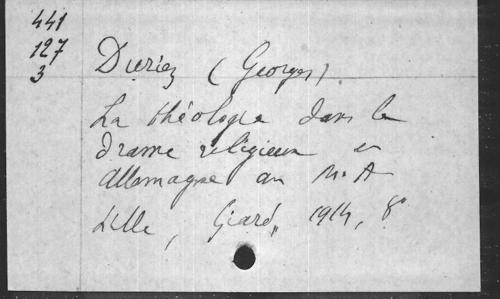 441
127
3
Duriez (Georges)
La théologie dans le
drame religieux en
Allemagne au M. A
Lille, Giard, 1914, 8°